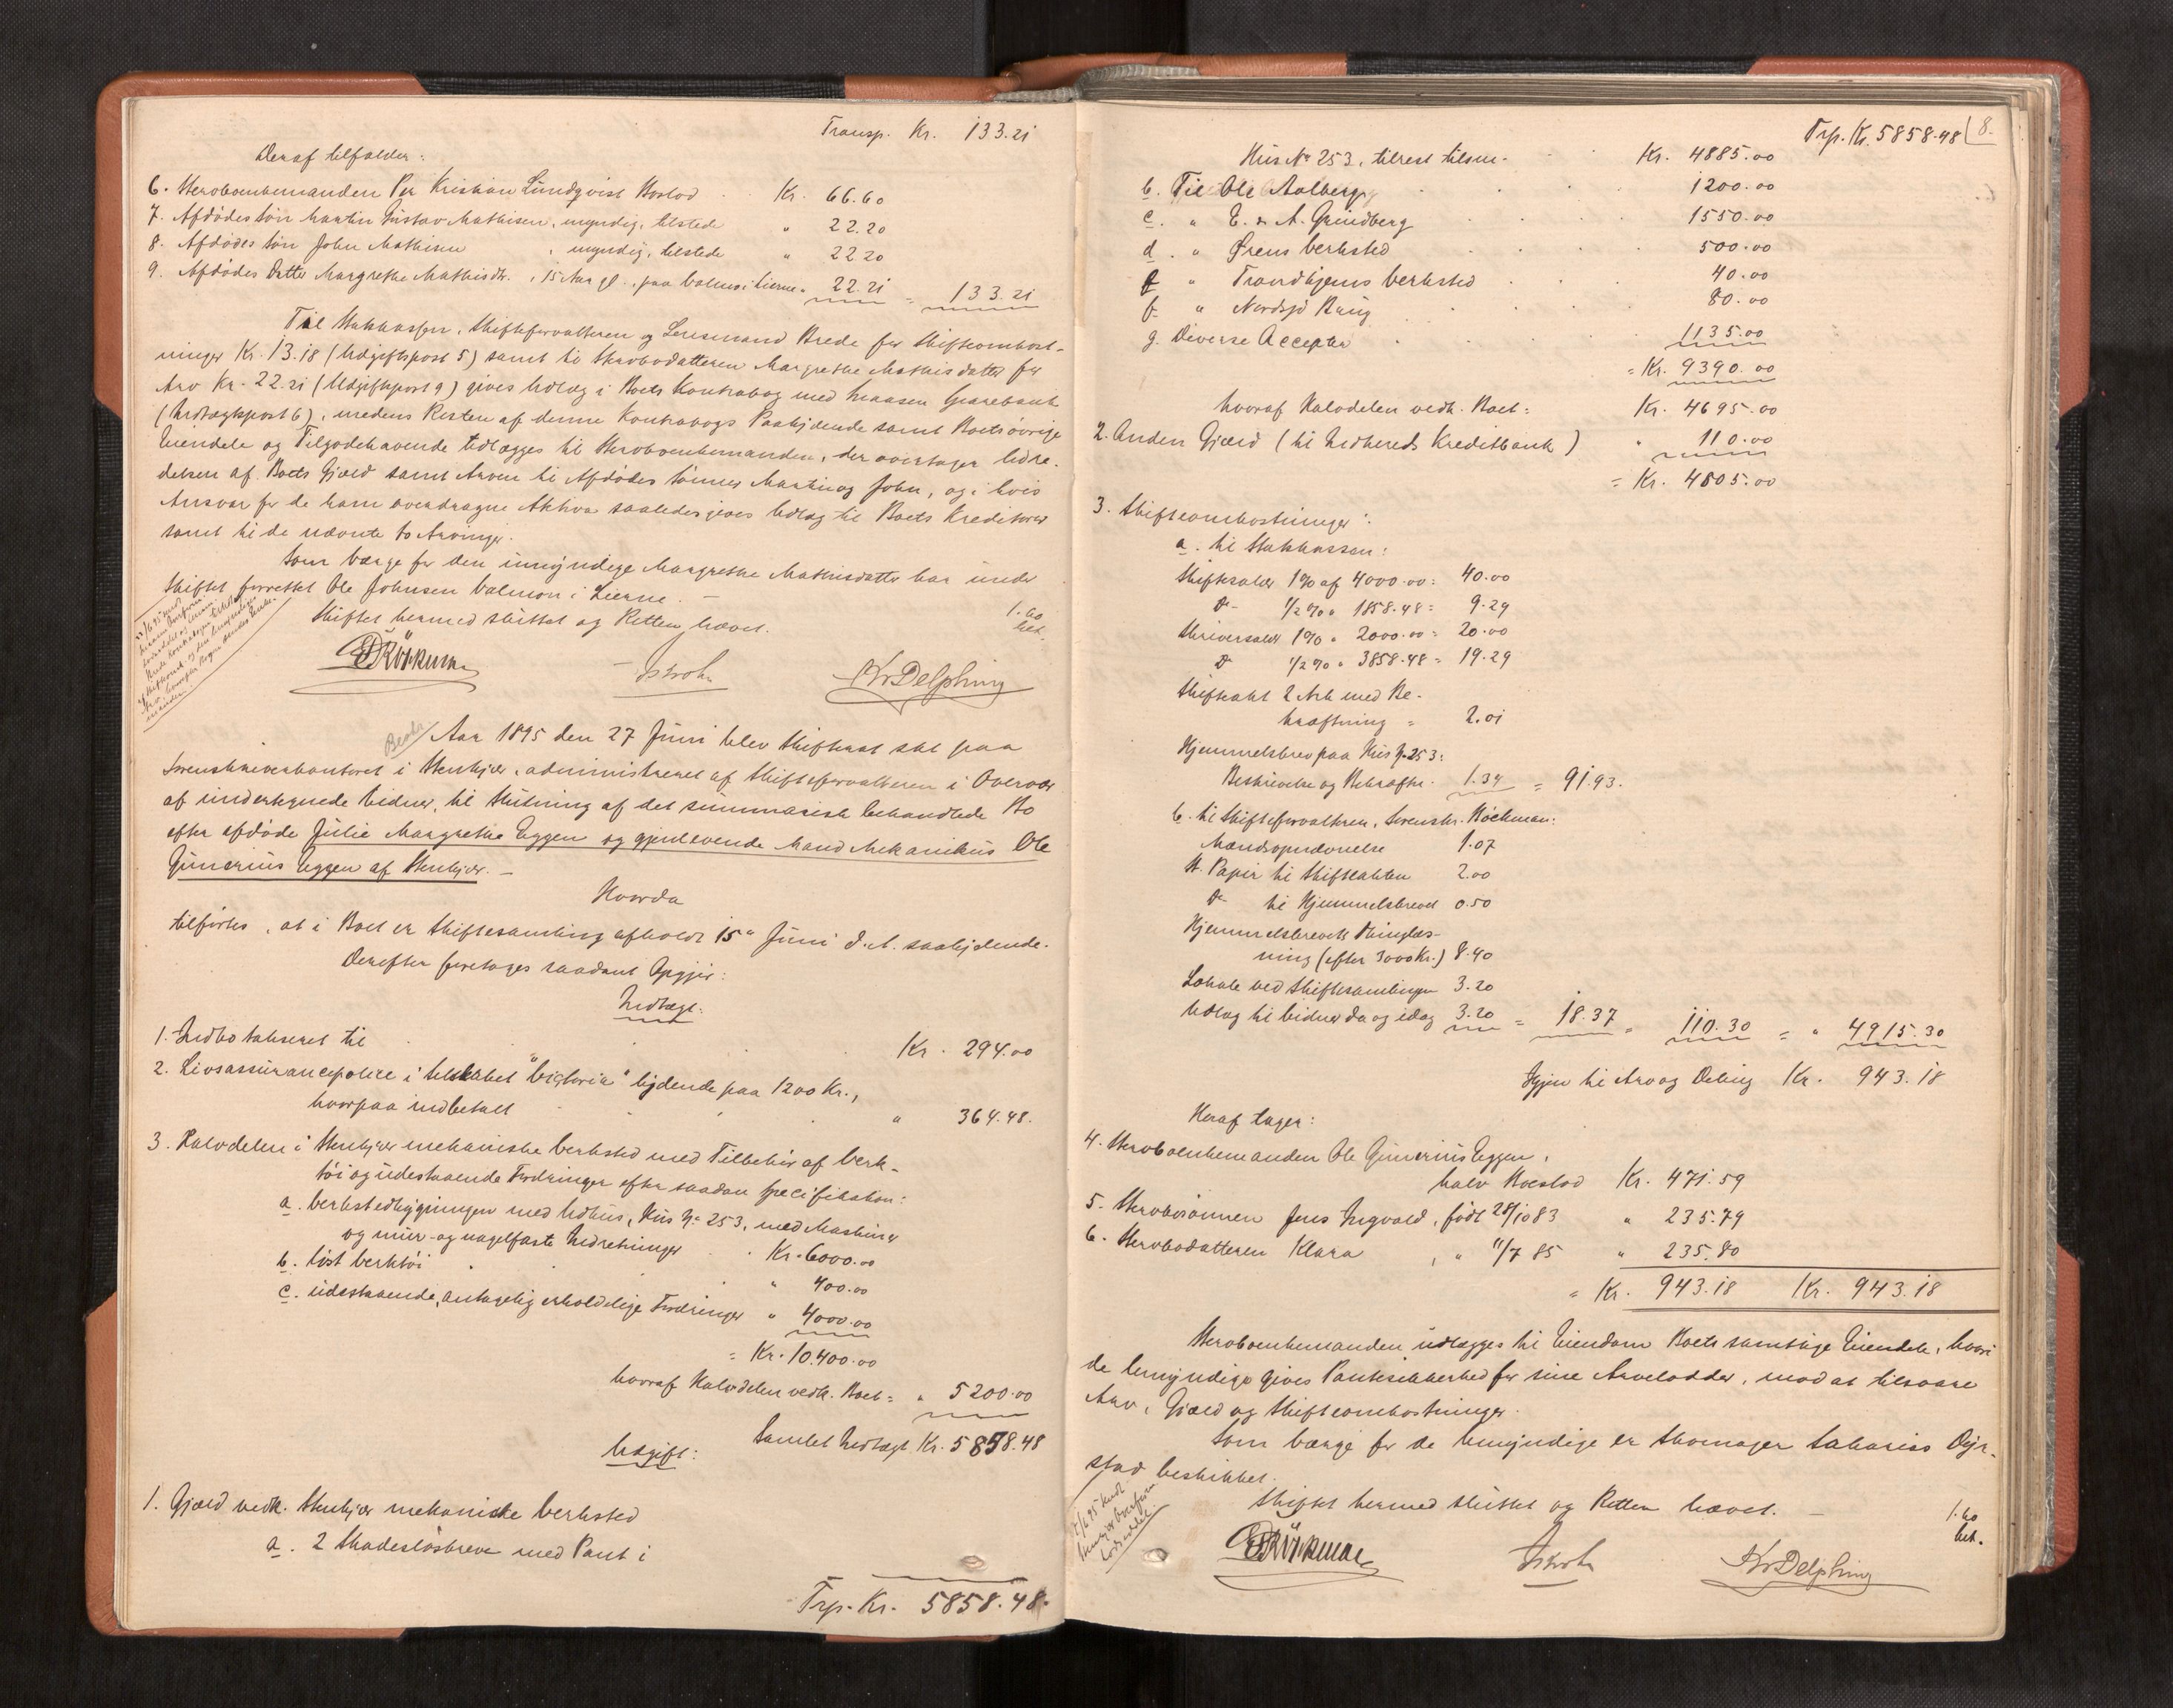 Transp. Kr. 133.21
Deraf tilfalder:
6. Sterboenkemanden Per Kristian Lundqvist Boslod Kr. 66.60
7. Afdødes Søn Martin Gustav Mathisen, myndig, tilstede " 22.20
8. Afdødes Søn John Mathisen, myndig, tilstede " 22.20
9. Afdødes Datter Margrethe Mathisdtr., 15 Aar gl., paa Valmo i Lierne " 22.21 = 133.21
Til Statskassen, Skifteforvalteren og Lensmand Brede for Skifteomkost-
ninger Kr. 13.18 (Udgiftspost 5) samt til Sterbodatteren Margrethe Mathisdatter for
Arv Kr. 22.21 (Udgiftspost 9) gives Udlæg i Boets Kontrabog med Snaasen Sparebank
(Indtægtspost 6), medens Resten af denne Kontrabogs Paalydende samt Boets øvrige
Eiendele og Tilgodehavende udlægges til Sterboenkemanden, der overtager Udre-
delsen af Boets Gjæld samt Arven til Afdødes Sønner Martin og John, og i hvis
Ansvar for de ham overdragne Aktiva saaledes gives Udlæg til Boets Kreditorer
samt til de nævnte to Arvinger.
Som Værge for den umyndige Margrethe Mathisdatter har under
Skiftet forrettet Ole Johnsen Valmoen i Lierne. –
Skiftet hermed sluttet og Retten hævet.
1.60
bet.
Böckman
Kr Delphin
Aar 1895 den 27 Juni blev Skifteret sat paa
Sorenskriverkontoret i Stenkjær, administreret af Skifteforvalteren i Overvær
af undertegnede Vidner, til Slutning af det summarisk behandlede Bo
efter afdøde Julie Margrethe Eggen og gjenlevende Mand Mekanikus Ole
Gunerius Eggen af Stenkjær. –
Hvorda
tilførtes, at i Boet er Skiftesamling afholdt 15de Juni d. A. saalydende.
Derefter foretages saadant Opgjør:
Indtægt:
1. Indbo taxeret til Kr. 294.00
2. Livsassurancepolice i Selskabet "Victoria" lydende paa 1200 Kr.,
hvorpaa indbetalt " 364.48.
3. Halvdelen i Stenkjær mekaniske Verksted med Tilbehør af Verk-
tøi og udestaaende Fordringer efter saadan Specifikation:
a. Verkstedbygningen med Udhus, Hus No 253, med Maskiner
og mur- og nagelfaste Indretninger Kr. 6000.00
b. løst Verktøi " 400.00
c. udestaaende, antagelig erholdelige Fordringer " 4000.00
= Kr. 10.400.00
hvoraf Halvdelen vedk. Boet = " 5200.00
Samlet Indtægt Kr. 5858.48
Udgift:
1. Gjæld vedk. Stenkjær mekaniske Verksted
a. 2 Skadesløsbreve med Pant i
Trp. Kr. 5858.48.
Trp. Kr. 5858.48
8.
Hus No 253, tilrest tilsm. Kr. 4885.00
b. Til Ole Aalberg 1200.00
c. " E. & A. Grindberg 1550.00
d. " Ørens Verksted 500.00
e " Trondhjems Verksted 40.00
f. " Nordsjø Brug 80.00
g. Diverse Accepter 1135.00
= Kr. 9390.00
hvoraf Halvdelen vedk. Boet: Kr. 4695.00
2. Anden Gjæld (til Indhereds Kreditbank) " 110.00
= Kr. 4805.00
3. Skifteomkostninger:
a. til Statskassen:
Skiftesalær 1% af 4000.00 = 40.00
Do 1/2 % " 1858.48 = 9.29
Skriversalær 1% " 2000.00 = 20.00
Do 1/2 % " 3858.48 = 19.29
Skifteakt 2 Ark med Be-
kræftning = 2.01
Hjemmelsbrev paa Hus No 253:
Beskrivelse og Bekræftn. 1.34 = 91.93.
b. til Skifteforvalteren, Sorenskr. Böckman:
Mændsopnævnelse 1.07
St. Papir til Skifteakten 2.00
Do til Hjemmelsbrevet 0.50
Hjemmelsbrevets Thinglæs-
ning (efter 3000 Kr.) 8.40
Lokale ved Skiftesamlingen 3.20
Udlæg til Vidner da og idag 3.20 = 18.37 = 110.30 = " 4915.30
Igjen til Arv og Deling Kr. 943.18
Heraf tager:
4. Sterboenkemanden Ole Gunerius Eggen,
halv Boeslod Kr. 471.59
5. Sterbosønnen Jens Ingvald, født 28/10 83 " 235.79
6. Sterbodatteren Klara, " 11/7 85 " 235.80
= Kr. 943.18 Kr. 943.18
Sterboenkemanden udlægges til Eiendom Boets samtlige Eiendele, hvori
de Umyndige gives Pantesikkerhed for sine Arvelodder, mod at tilsvare
Arv, Gjæld og Skifteomkostninger.
Som Værge for de Umyndige er Skomager Sakarias Dyr-
stad beskikket.
Skiftet hermed sluttet og Retten hævet. –
1.60
bet.
Böckman
Kr Delphin